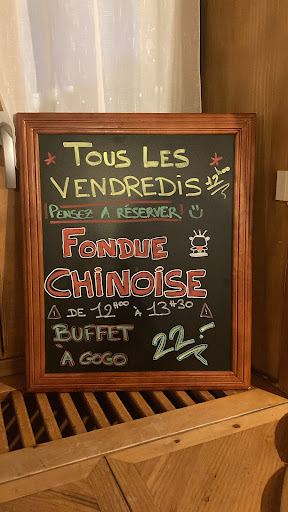 TOUS LES
VENDREDIS
PENSEZ À RÉSERVER!
FONDUE
CHINOISE
DE 12H00 À 13H30
BUFFET
À GOGO
22.-